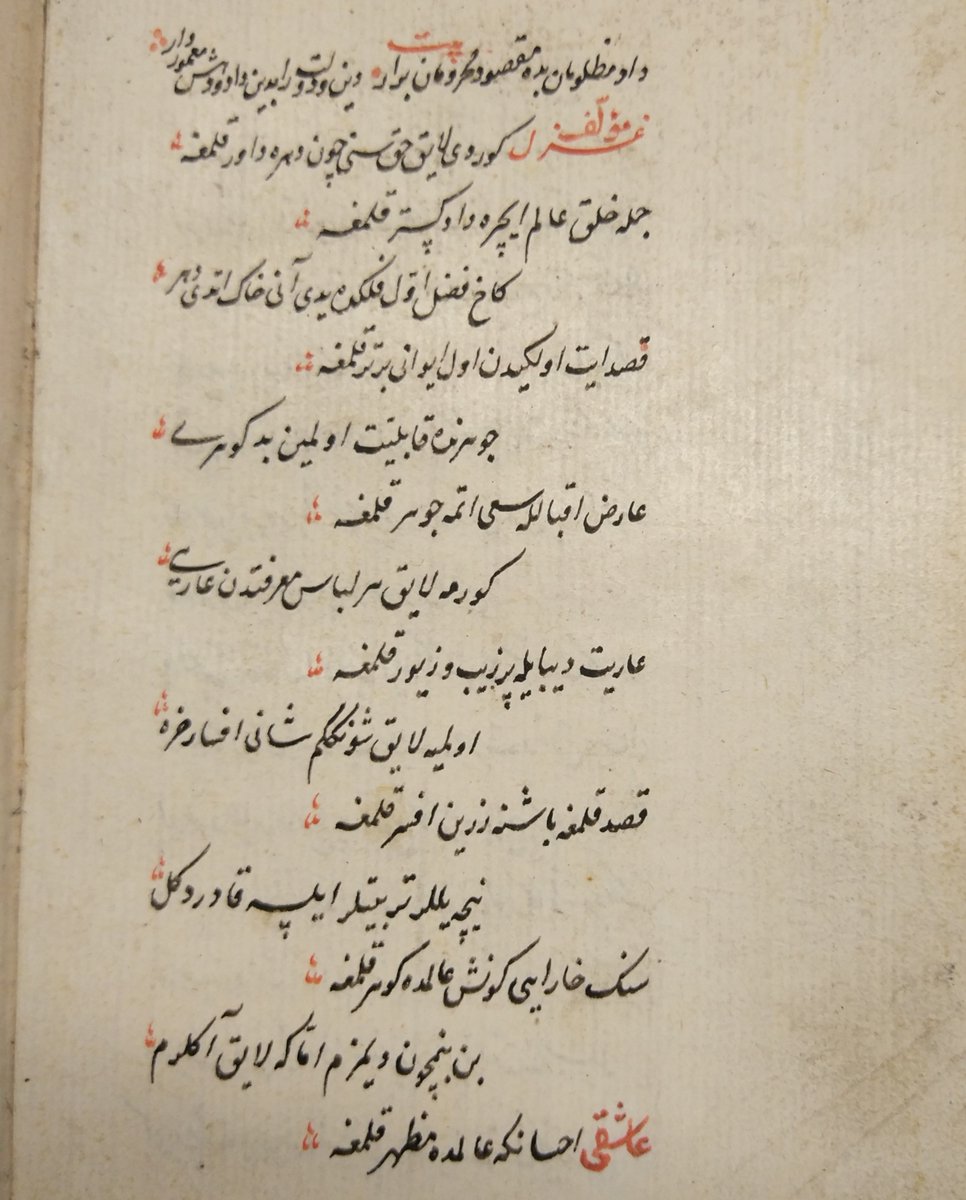 بیت
داد مظلومان بده مقصود محرومان برار دین و دولت را بدین داد و دهش معمور دار
غزل مؤلف کوردی لایق حق سنی چون دهره داور قلمغه
جمله خلق عالم ایچره دادکستر قلمغه
کاخ فضل اول فلکده یدی آنی خاک اتدی دهر
قصد ایت اولکیدن اول ایوانی برتر قلمغه
جوهرنده قابلیت اولمین بد کوهری
عارض اقبالله سعی اتمه جوهر قلمغه
کورمه لایق هر لباس معرفتدن عاری یی
عاریت دیبایله پر زیب و زیور قلمغه
اولمیه لایق شونککم شانی افسار خره
قصد قلمغه باشنه زرین افسر قلمغه
نیچه ییللر تربیتلر ایلیسه قادر دکل
سنک خارایی کونش عالمده کوهر قلمغه
بن بنمچون دیمزم اما که لایق آکلرم
عاشقی احسانکه عالمده مظهر قلمغه